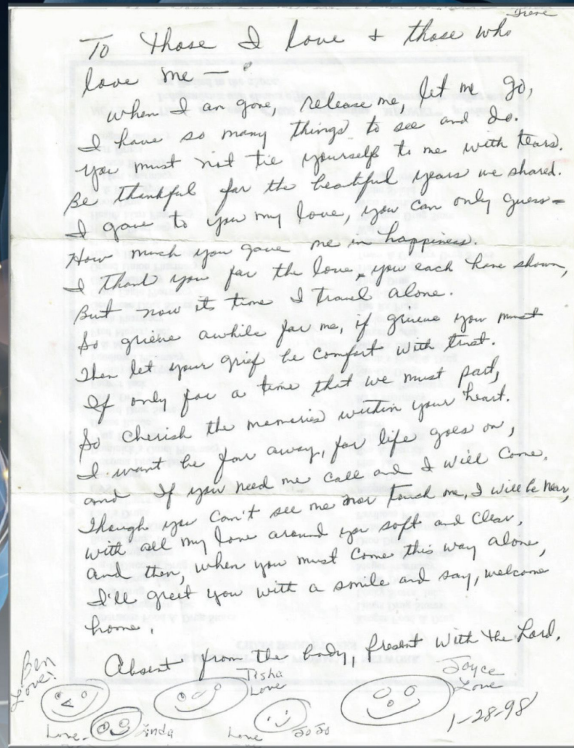 Irene
To Those I love + those who
love me —
When I am gone, release me, let me go,
I have so many things to see and do.
You must not tie yourself to me with tears.
Be thankful for the beautiful years we shared.
I gave to you my love, you can only guess -
How much you gave me in happiness.
I thank you for the love, you each have shown,
But now its time I travel alone.
So grieve awhile for me, if grieve you must
Then let your grief be comfort with trust.
If only for a time that we must part,
So cherish the memories within your heart.
I want be far away, for life goes on,
and If you need me call and I will come.
Though you can't see me nor touch me, I will be near,
with all my love around you soft and clear,
and then, when you must come this way alone,
I'll greet you with a smile and say, welcome
home.
Absent from the body, present with the Lord.
Ben
Love!
Tisha
Love
Joyce
Love
Love-
inda
Love
JoJo
1-28-98